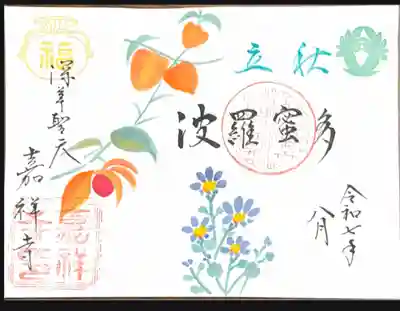 福
立秋
波羅蜜多
令和七年
八月
深草聖天
嘉祥寺